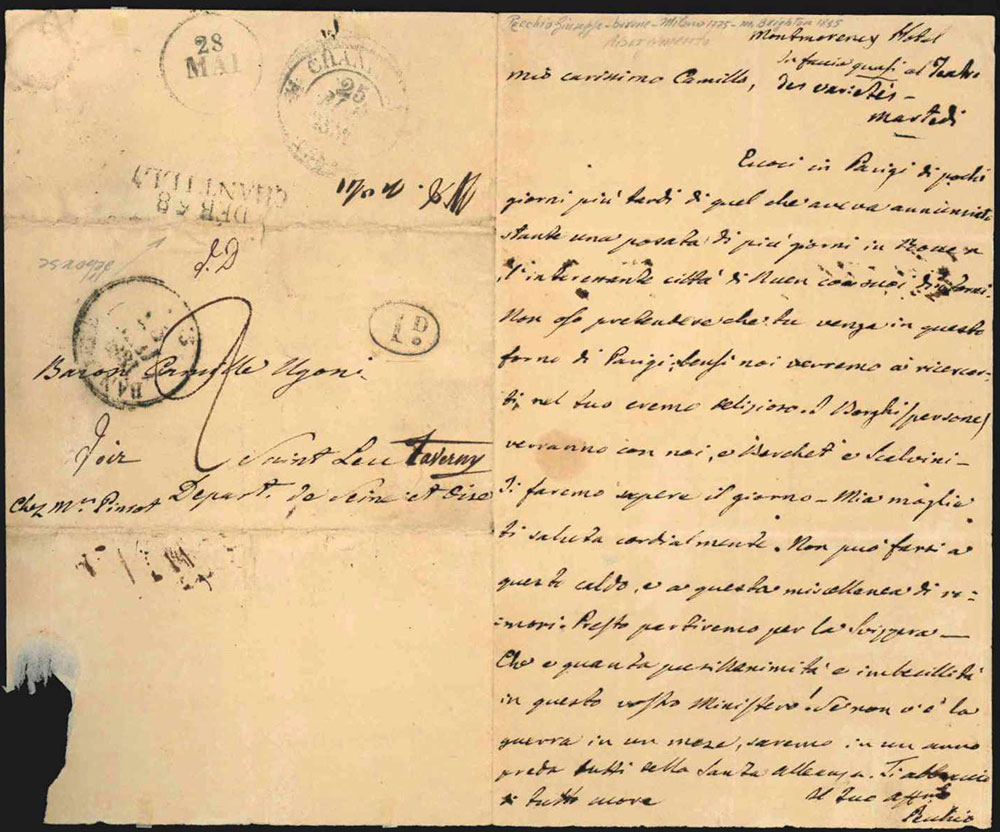 Pecchio Giuseppe - barone - Milano 1785 - m. Brighton 1835
Risorgimento
28
MAI
CHAN
25
DEB 58
CHANTILLY
debourse
1 D
Baron Camille Ugoni
Saint Leu Taverny
Depart. de Seine et Oise
Chez Mr. Pinsot
Montmorency Hotel
in faccia quasi al Teatro
des varietés -
martedi
mio carissimo Camillo,
Eccoci in Parigi di pochi
giorni più tardi di quel che aveva annunziato
stante una posata di più giorni in Rouen
l'interessante città di Ruen con suoi dintorni.
Non oso pretendere che tu venga in questo
forno di Parigi; bensi noi verremo a ricercar-
ti nel tuo eremo delizioso. I Borghi (persone)
verranno con noi, e Berchet e Scalvini -
ti faremo sapere il giorno - Mia moglie
ti saluta cordialmente. Non può farsi a
questo caldo, e a questa miscellanea di ro-
mori. Presto partiremo per la Svizzera -
Che e quanta pusillanimità e imbecillità
in questo vostro Ministero! Se non v'è la
guerra in un mese, saremo in un anno
preda tutti della Santa alleanza. Ti abbraccio
di tutto cuore
Il tuo affmo
Pecchio